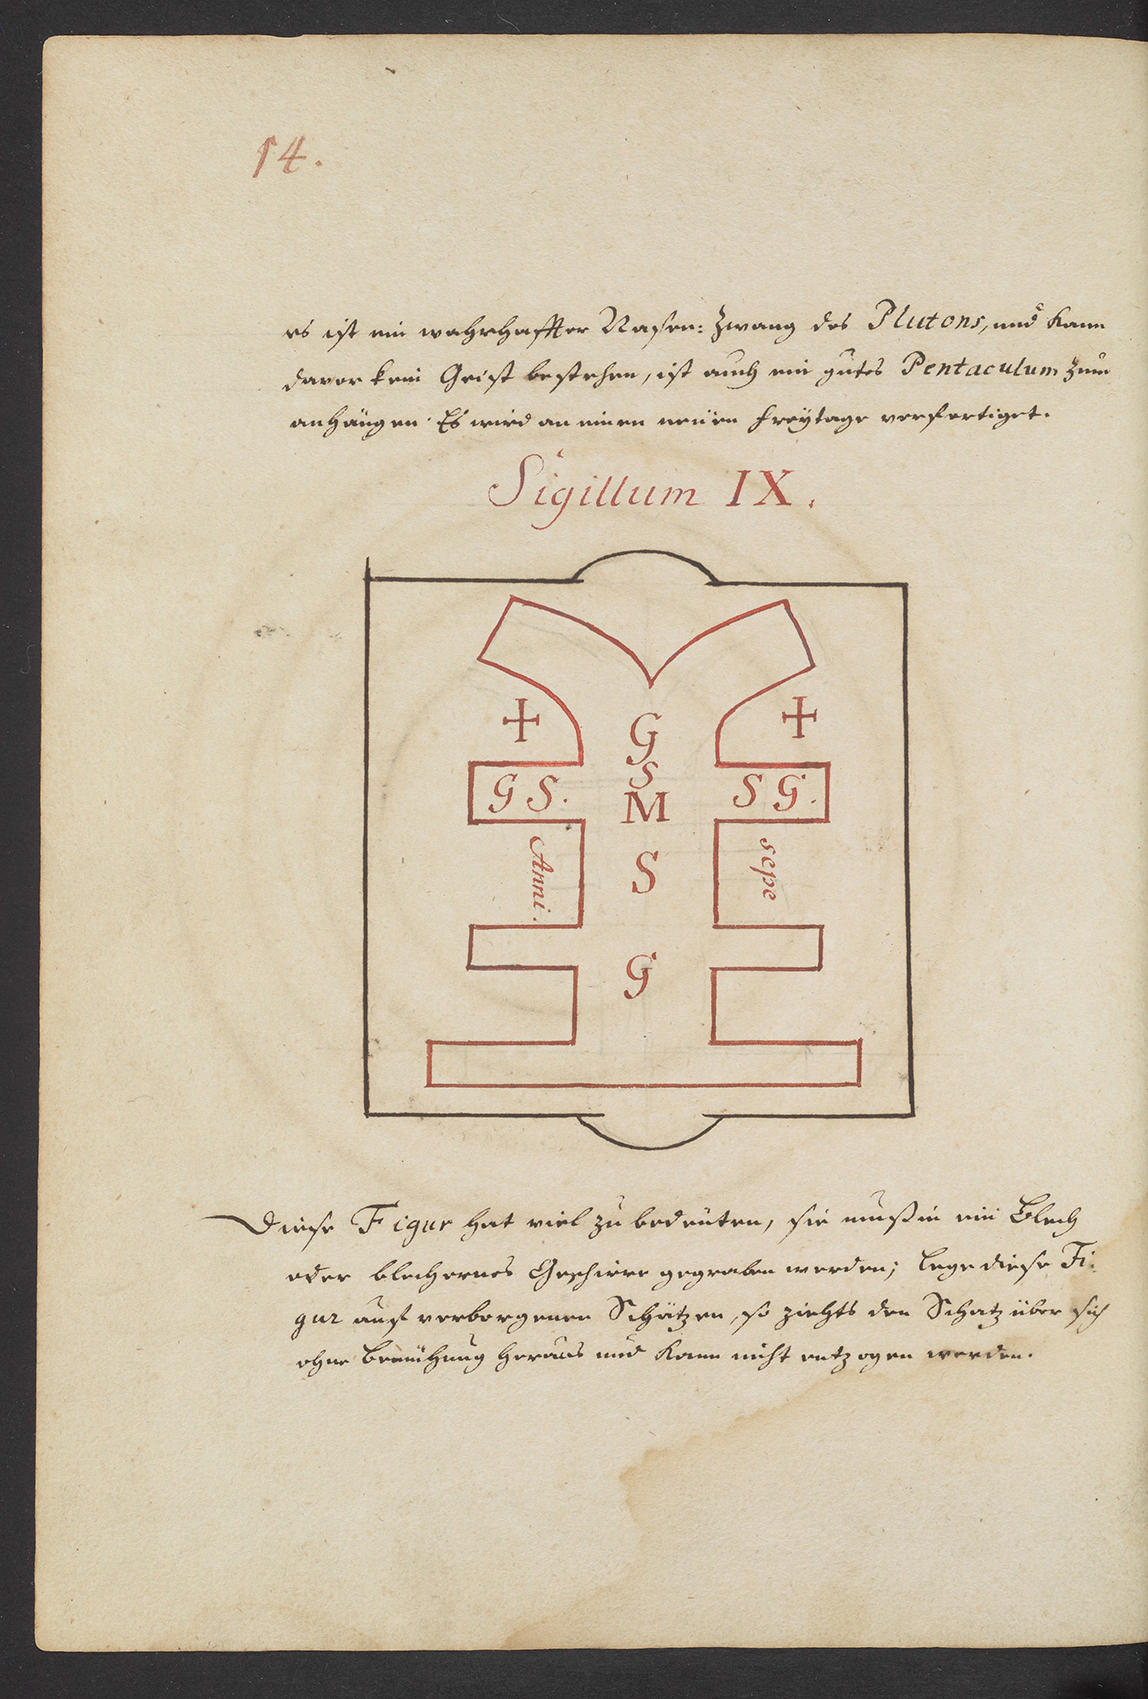 14.
es ist ein wahrhaffter Nasen: Zwang des Plutons, und kann
davor kein Geist bestehen, ist auch ein gutes Pentaculum zum
anhängen. Es wird an einen neüen Freÿtage verfertiget.
Sigillum IX.
G
S
G S.
S G.
M
S
Anni.
sepe
G
Diese Figur hat viel zu bedeüten, sie muß in ein Blech
oder blechernes Geschirr gegraben werden; lege diese Fi:
gur auf verborgenen Schätzen, so ziehts den Schatz über sich
ohne Bemühung heraus und kann nicht entzogen werden.